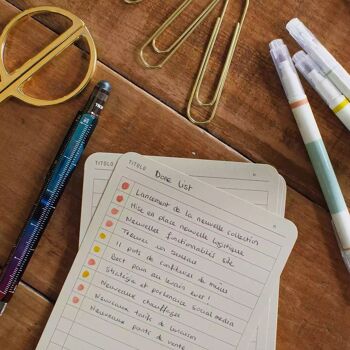 TITOLO
TITOLO
Done List
Lancement de la nouvelle collection
Mise en place nouvelle logistique
Nouvelles fonctionnalités site
Trouver un serveau
11 pots de confitures de mûres
Best pain au levain ever!
Stratégie et partenariat social media
Nouveaux chauffage
Nouveaux tarifs de livraison
Nouveaux points de vente